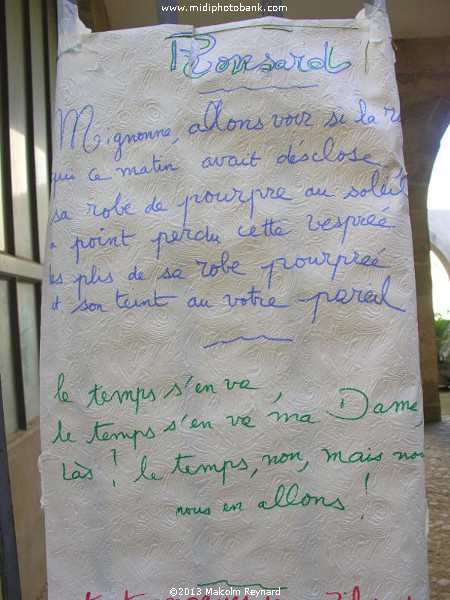 www.midiphotobank.com
Ronsard !
Mignonne, allons voir si la ro
qui ce matin avait désclose
sa robe de pourpre au soleil
a point perdu cette vespreé
les plis de sa robe pourpreé
et son teint au votre pareil
le temps s'en va,
le temps s'en va ma Dame,
Làs ! le temps, non, mais nou
nous en allons !
©2013 Malcolm Reynard